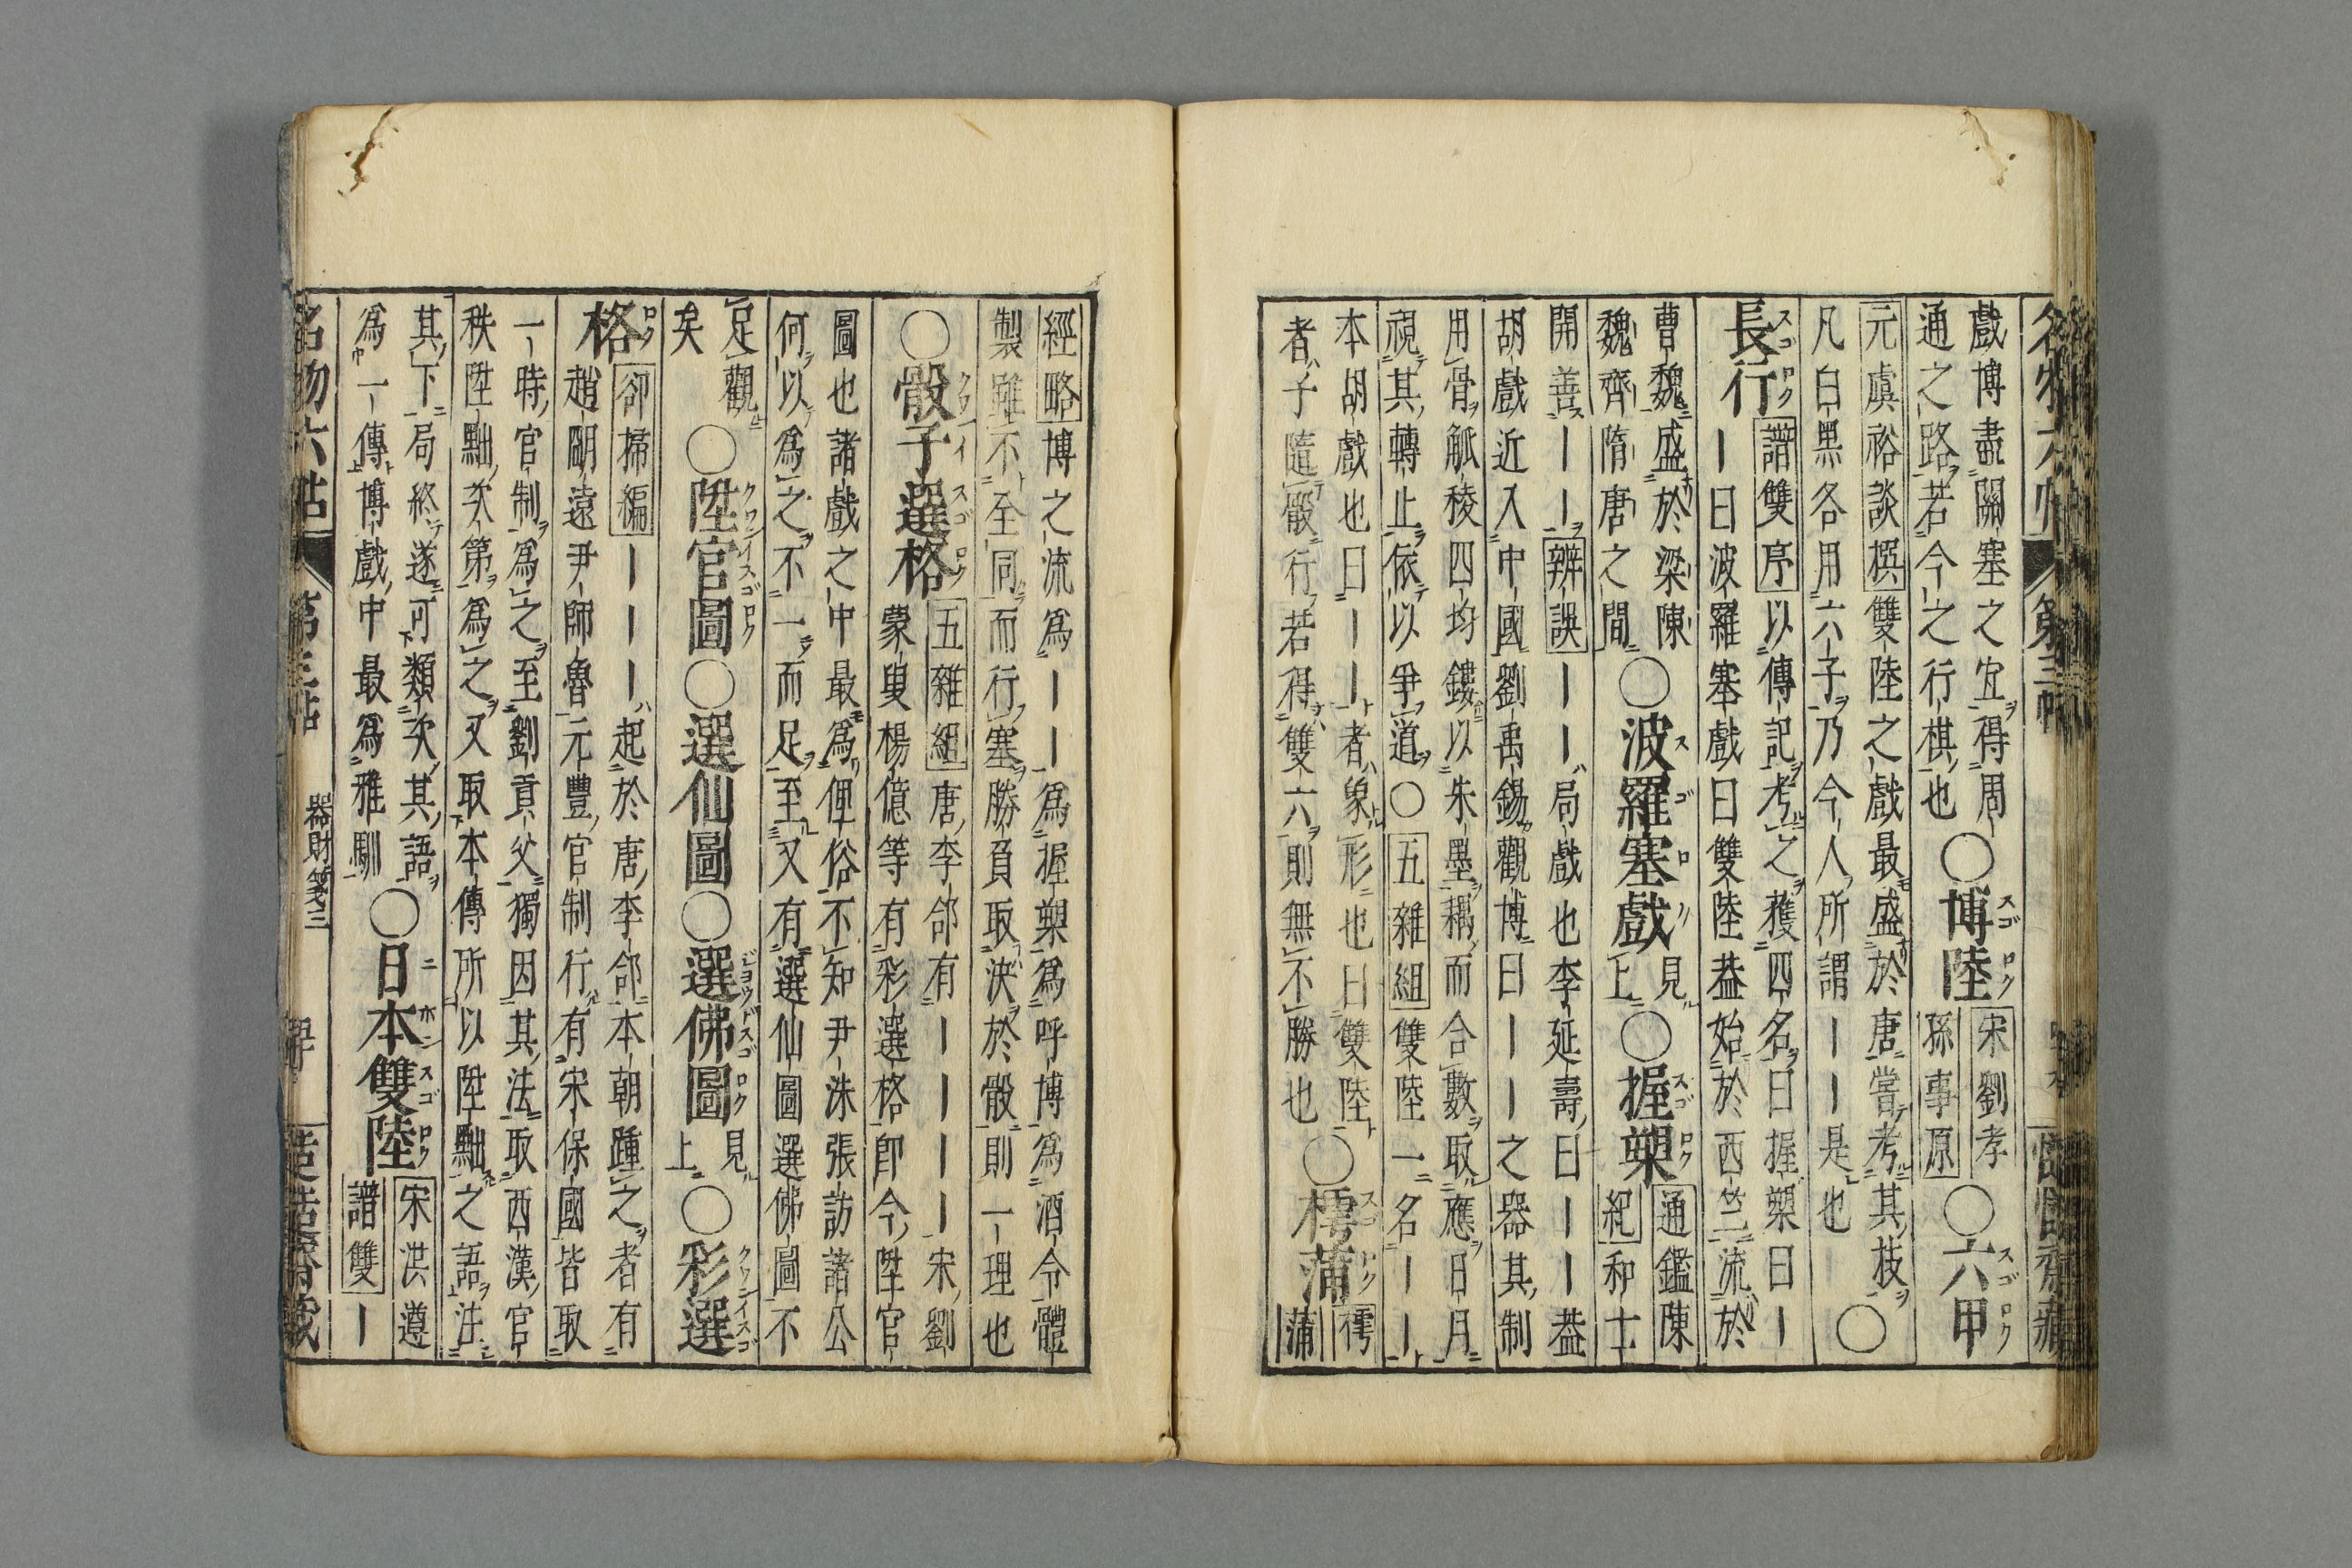 戲博盡關塞之宜得周
通之路若今之行棋也
○博陸
宋劉孝
孫事原
○六甲
元虞裕談撰雙陸之戲最盛於唐嘗考其技
凡白黒各用六子乃今人所謂｜｜是也
○長行
譜雙序以傳記考之獲四名曰握槊曰｜
｜曰波羅塞戲曰雙陸葢始於西竺流於
曹魏盛於梁陳
魏齊隋唐之間
○波羅塞戲
見上
○握槊
通鑑陳
紀和士
開善｜｜辨誤｜｜局戲也李延壽曰｜｜葢
胡戲近入中國劉禹錫觀博曰｜｜之器其制
用骨觚稜四均鏤以朱墨耦而合數取應日月
視其轉止依以爭道○五雜組雙陸一名｜｜
本胡戲也曰｜｜者象形也曰雙陸
者子隨骰行若得雙六則無不勝也
○樗蒲
樗
蒲
經略博之流爲｜｜爲握槊爲呼博爲酒令體
製雖不全同而行塞勝負取決於骰則一理也
○骰子選格
五雜組唐李郃有｜｜｜｜宋劉
蒙叟楊億等有彩選格即今陞官
圖也諸戲之中最爲俚俗不知尹洙張訪諸公
何以爲之不一而足至又有選仙圖選佛圖不
足觀
矣
○陞官圖○選仙圖○選佛圖
見上
○彩選
格
卻掃編｜｜｜起於唐李郃本朝踵之者有
趙明遠尹師魯元豐官制行有宋保國皆取
一時官制爲之至劉貢父獨因其法取西漢官
秩陞黜次第爲之又取本傳所以陞黜之語注
其下局終遂可類次其語
爲一傳博戲中最爲雅馴
○日本雙陸
宋洪遵
譜雙｜
名物六帖
第三帖
器財箋三